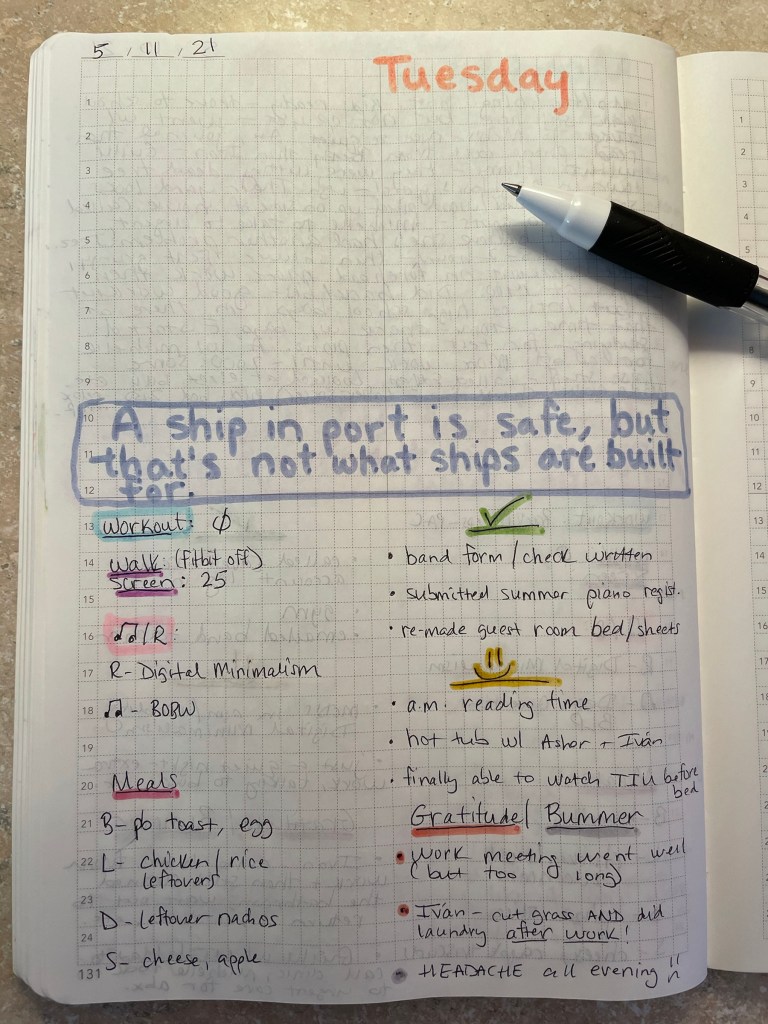 5, 11, 21
Tuesday
1
2
3
4
5
6
7
8
9
10
11
12
A ship in port is safe, but
that's not what ships are built
for.
13
14
15
16
17
18
19
20
21
22
23
24
131
Workout: ϕ
Walk: (fitbit off)
Screen: 25
♫/R:
R- Digital Minimalism
♫ - BOBW
Meals
B- pb toast, egg
L- chicken/rice
leftovers
D- leftover nachos
S- cheese, apple
✓
• band form/check written
• submitted summer piano regist.
• re-made guest room bed/sheets
• a.m. reading time
• hot tub w/ Asher + Iván
• finally able to watch TIU before
bed
Gratitude/ Bummer
• Work meeting went well
(but too long)
• Iván - cut grass AND did
laundry after work!
• HEADACHE all evening
1
2
3
4
5
6
8
9
10
11
12
13
14
15
16
17
18
19
20
21
22
23
24